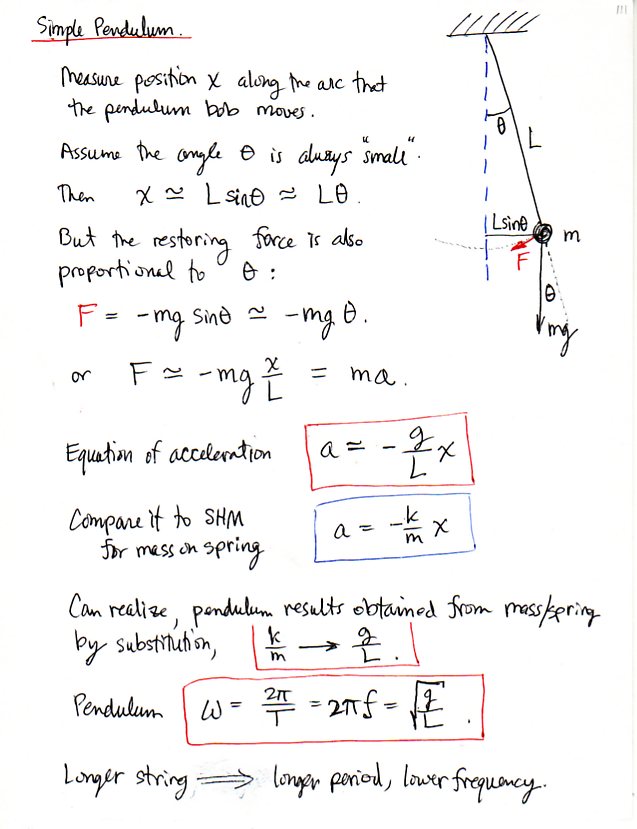 Simple Pendulum.
Measure position x along the arc that
the pendulum bob moves.
Assume the angle θ is always "small".
Then x ≃ L sinθ ≃ Lθ.
But the restoring force is also
proportional to θ :
F = -mg sinθ ≃ -mg θ.
or F ≃ -mg x/L = ma.
Equation of acceleration a ≃ - g/L x
Compare it to SHM
for mass on spring a = - k/m x
Can realize, pendulum results obtained from mass/spring
by substitution, k/m → g/L .
Pendulum ω = 2π/T = 2πf = √(g/L) .
Longer string ⟹ longer period, lower frequency.
θ
L
L sinθ
m
F
θ
mg